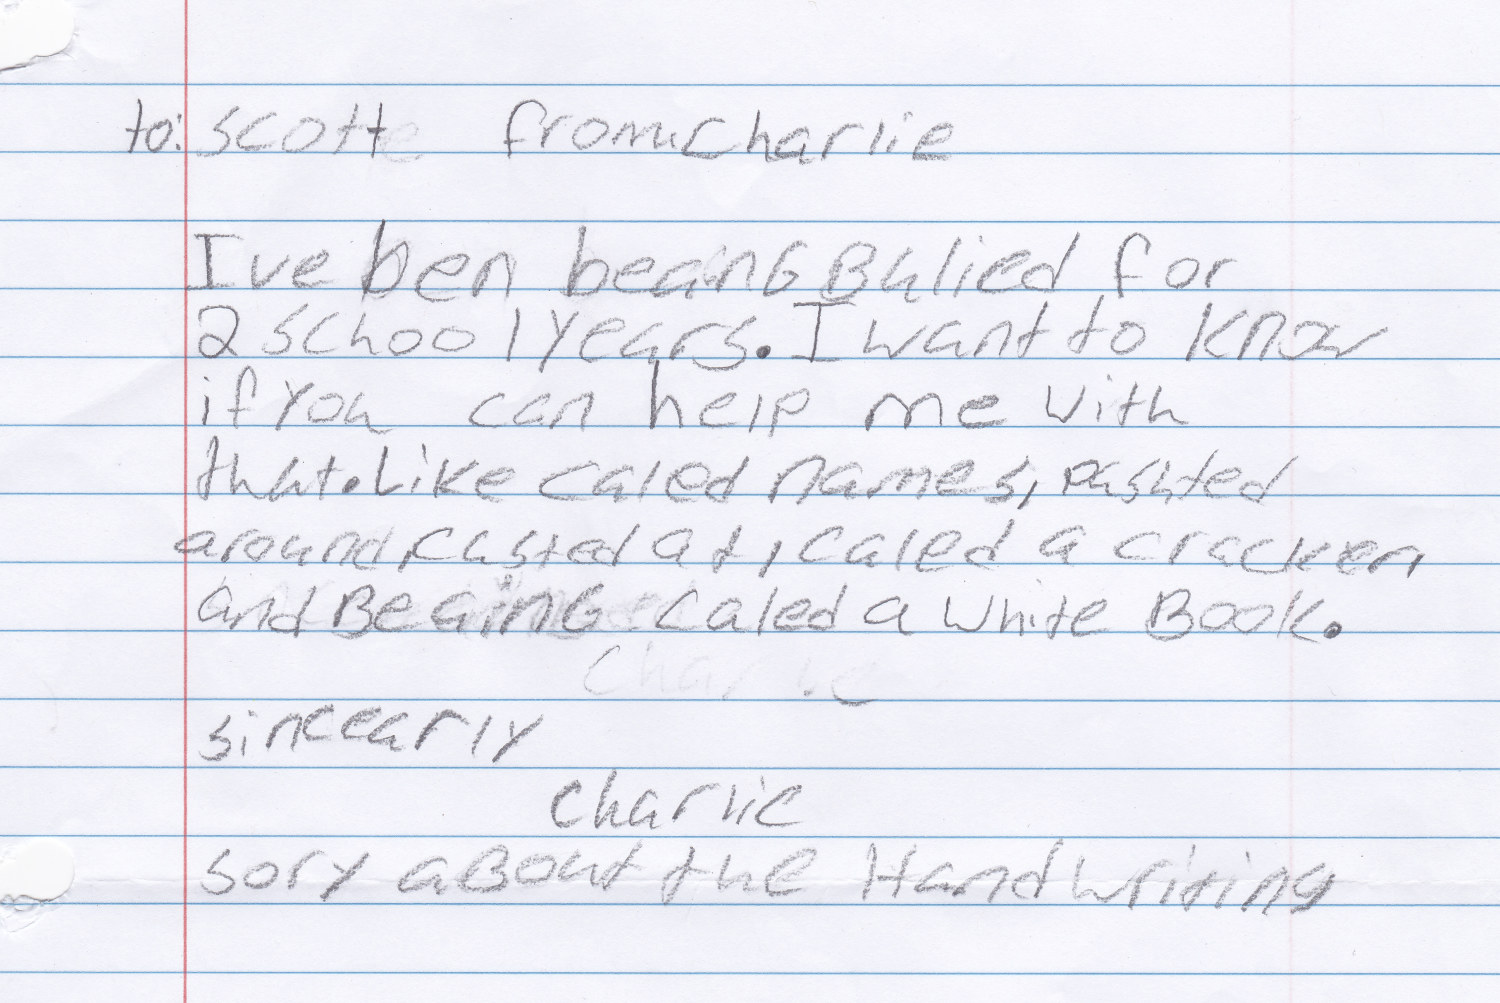 to: scott from: charlie
I've ben beaing Bulied for
2 school years. I want to know
if you can help me with
that. Like caled names, pushted
around, custed at, caled a cracken,
and Beaing caled a white Book.
charlie
sincearly
charlie
sory aBout the Handwriting